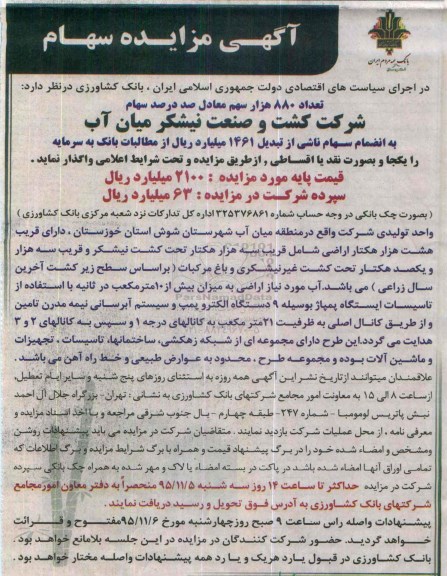 آگهی مزایده سهام
بانک همه مردم ایران
در اجرای سیاست های اقتصادی دولت جمهوری اسلامی ایران ، بانک کشاورزی درنظر دارد:
تعداد ۸۸۰ هزار سهم معادل صد درصد سهام
شرکت کشت و صنعت نیشکر میان آب
به انضمام سهام ناشی از تبدیل ۱۴۶۱ میلیارد ریال از مطالبات بانک به سرمایه
را یکجا و بصورت نقد یا اقساطی ، ازطریق مزایده و تحت شرایط اعلامی واگذار نماید .
قیمت پایه مورد مزایده : ۲۱۰۰ میلیارد ریال
سپرده شرکت در مزایده : ۶۳ میلیارد ریال
( بصورت چک بانکی در وجه حساب شماره ۳۲۵۳۷۶۸۶۱ اداره کل تدارکات نزد شعبه مرکزی بانک کشاورزی )
واحد تولیدی شرکت واقع درمنطقه میان آب شهرستان شوش استان خوزستان ، دارای قریب
هشت هزار هکتار اراضی شامل قریب سه هزار هکتار تحت کشت نیشکر و قریب سه هزار
و یکصد هکتار تحت کشت غیرنیشکری و باغ مرکبات ( براساس سطح زیر کشت آخرین
سال زراعی ) می باشد. آب مورد نیاز اراضی به میزان بیش از ۱۰مترمکعب در ثانیه با استفاده از
تاسیسات ایستگاه پمپاژ بوسیله ۹ دستگاه الکترو پمپ و سیستم آبرسانی نیمه مدرن تامین
و از طریق کانال اصلی به ظرفیت ۲۱متر مکعب به کانالهای درجه ۱ و سپس به کانالهای ۲ و ۳
هدایت می گردد.این طرح دارای مجموعه ای از شبکه زهکشی، ساختمانها، تاسیسات ، تجهیزات
و ماشین آلات بوده و مجموعه طرح ، محدود به عوارض طبیعی و خط راه آهن می باشد .
علاقمندان میتوانند ازتاریخ نشر این آگهی همه روزه به استثنای روزهای پنج شنبه و سایر ایام تعطیل،
ازساعت ۸ الی ۱۵ به معاونت امور مجامع شرکتهای بانک کشاورزی به نشانی : تهران - بزرگراه جلال آل احمد
نبش پاتریس لومومبا - شماره ۲۴۷ -طبقه چهارم - بال جنوب شرقی مراجعه و با اخذ اسناد مزایده و
معرفی نامه ، از محل عملیات شرکت بازدید نمایند . متقاضیان شرکت در مزایده می باید پیشنهادات روشن
ومشخص و امضاء شده خود را در برگ پیشنهاد قیمت و همراه با برگ شرایط مزایده و برگ اطلاعات که
تمامی اوراق آنها امضاء شده باشد در پاکت در بسته امضاء یا لاک و مهر شده به همراه چک بانکی سپرده
شرکت در مزایده حداکثر تا ساعت ۱۴ روز سه شنبه ۹۵/۱۱/۵ منحصراً به دفتر معاون امورمجامع
شرکتهای بانک کشاورزی به آدرس فوق تحویل و رسید دریافت نمایند .
پیشنهادات واصله راس ساعت ۹ صبح روزچهارشنبه مورخ ۹۵/۱۱/۶مفتوح و قرائت
خواهد گردید. حضور شرکت کنندگان در مزایده در این جلسه بلامانع خواهد بود .
بانک کشاورزی در قبول یارد هریک و یا رد همه پیشنهادات واصله مختار خواهد بود .